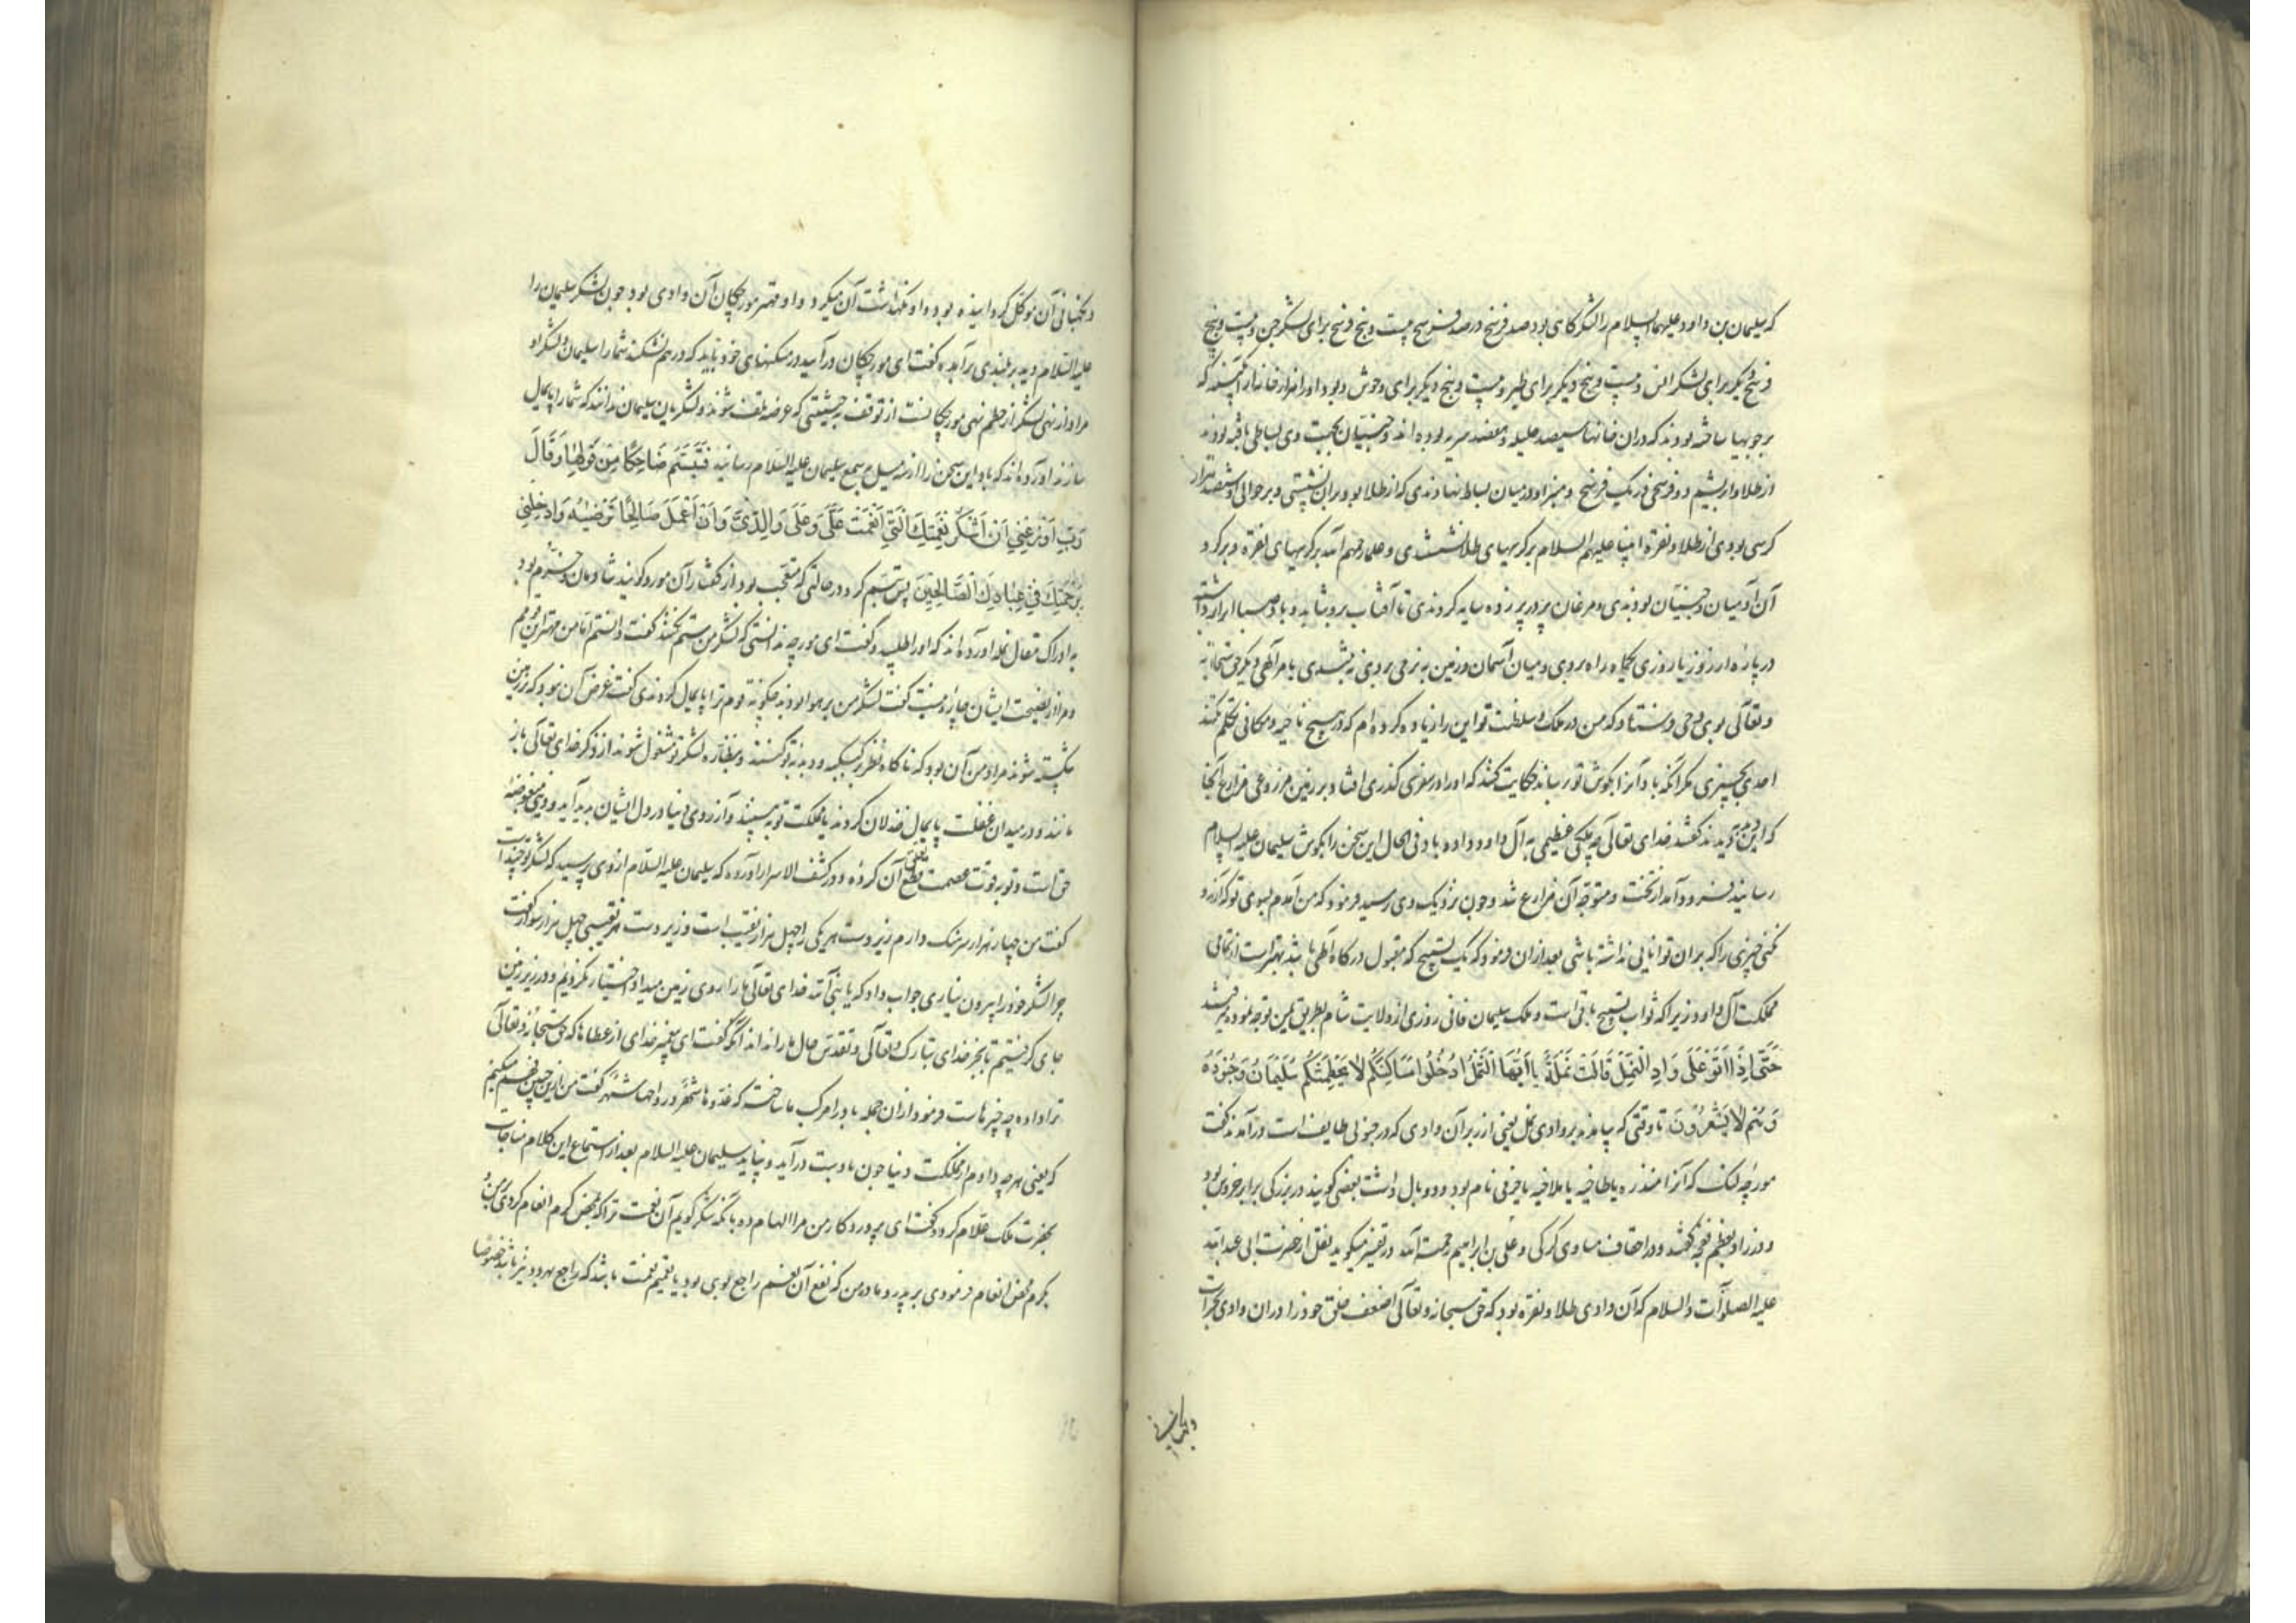 که سلیمان بن داود علیهما السلام را لشکرگاهی بود صد فرسخ در صد فرسخ بیست و پنج فرسخ برای لشکر جن و بیست و پنج
فرسخ دیگر برای لشکر انس و بیست و پنج دیگر برای طیر و بیست و پنج دیگر برای وحوش و بود او را هزار خانه از آبگینه که
بر چوبها ساخته بودند که دران خانها سیصد حلیله و هفتصد سریه بوده اند و جنیان بجهت وی بساطی بافته بودند
از طلا و ابریشم دو فرسخی در یک فرسخ و منبر او در میان بساط نهادندی که از طلا بود بران نشستی و بر حوالی او ششصد هزار
کرسی بودی از طلا و نقره انبیا علیهم السلام بر کرسیهای طلا نشستندی و علما رحمهم الله بر کرسیهای نقره و بر گرد
آن آدمیان و جنیان بودندی و مرغان پر در پر زده سایه کردندی تا آفتاب برو نتابد و باد صبا آنرا برداشته
در پاره از روز یا روزی یکماه راه بردی و میان آسمان و زمین به نرمی بردی نه بشدی بامر الهی دیگر حق سبحانه
و تعالی بوی وحی فرستاد که من در ملک و سلطنت تو این را زیاده کرده ام که در هیچ ناحیه و مکانی تکلم نکند
احدی بچیزی مگر آنکه باد آنرا بگوش تو رساند حکایت کنند که او را روزی گذری افتاد بر زمین مزروعی مزارع آنجا
که این بدید گفتند خدای تعالی چه ملکی عظیمی به آل داود داده باد فی الحال این سخن را بگوش سلیمان علیه السلام
رسانید فرود آمد از تخت و متوجه آن مزارع شد و چون نزدیک وی رسید فرمود که من آمدم بسوی تو که آرزو
نکنی چیزی را که بر آن توانایی نداشته باشی بعد ازان فرمود که یک تسبیح که مقبول درگاه الهی باشد بهتر است از تمامی
مملکت آل داود زیرا که ثواب تسبیح باقی است و ملک سلیمان فانی روزی از ولایت شام بطریق یمن توجه نموده میرفتند
حَتَّى اِذَا اَتَوْ عَلَى وَادِ النَّمْلِ قَالَتْ نَمْلَةٌ يَا اَيُّهَا النَّمْلُ ادْخُلُوا مَسَاكِنَكُمْ لَا يَحْطِمَنَّكُمْ سُلَيْمَانُ وَجُنُودُهُ
وَهُمْ لَا يَشْعُرُونَ تا وقتی که بیامدند بر وادی نمل یعنی از زبر آن وادی که در جنوبی طایف است درآمدند گفت
مورچه لنگ که آنرا منذره یا طاخیه یا ملاخیه یا جرمی نام بود و دو بال داشت بعضی گویند در بزرگی برابر خروس بود
و در زاد بعظم نعجه گفتند و در احقاف مساوی کرکی و علی بن ابراهیم رحمة الله در تفسیر میگوید نقل از حضرت ابی عبدالله
علیه الصلوات و السلام که آن وادی طلا و نقره بود که حق سبحانه و تعالی اضعف خلق خود را دران وادی بحراست
و نگهبانی
و نگهبانی آن موکل گردانیده بود و او نگهداشت آن میکرد و او مهتر مورچکان آن وادی بود چون لشکر سلیمان را
علیه السلام دید بر بلندی برآمده گفت ای مورچکان درآیید در مسکنهای خود باید که درهم نشکند شما را سلیمان و لشکر او
مراد از نهی لشکر از حطم نهی مورچکانست از توقف بحیثیتی که عرضه تلف شوند و لشکریان سلیمان ندانند که شما را پایمال
سازند آورده اند که باد این سخن را از سه میل بسمع سلیمان علیه السلام رسانید فَتَبَسَّمَ ضَاحِكًا مِنْ قَوْلِهَا وَقَالَ
رَبِّ اَوْزِعْنِي اَنْ اَشْكُرَ نِعْمَتَكَ الَّتِي اَنْعَمْتَ عَلَيَّ وَعَلَى وَالِدَيَّ وَاَنْ اَعْمَلَ صَالِحًا تَرْضَيٰهُ وَاَدْخِلْنِي
بِرَحْمَتِكَ فِي عِبَادِكَ الصَّالِحِينَ پس تبسم کرد در حالتی که متعجب بود از گفتار آن مور و گویند شادمان و خرم بود
به ادراک مقال نمله آورده اند که او را طلبید و گفت ای مورچه ندانستی که لشکر من ستم نکنند گفت دانستم اما من مهتر این قومم
و مرا از نصیحت ایشان چاره نیست گفت لشکر من بر هوا بودند چگونه قوم ترا پایمال کردندی گفت غرض آن نبود که بر زمین
شکسته شوند مراد من آن بود که ناگاه نظر بر کبکبه و دبدبه تو کنند و بنظاره لشکر تو مشغول شوند از ذکر خدای تعالی باز
مانند و در میدان غفلت پایمال خذلان گردند یا مملکت تو به بینند و آرزوی دنیا در دل ایشان پدید آید و دنیا مبغوضه
حق است و تو بقوت عصمت قطع تعلق آن کرده و در کشف الاسرار آورده که سلیمان علیه السلام از وی پرسید که لشکر تو چند است
گفت من چهار هزار سرهنک دارم زیر دست هر یکی را چهل هزار نقیب است و زیر دست هر نقیبی چهل هزار مور گفت
چرا لشکر خود را بیرون نیاری جواب داد که یا نبی الله خدای تعالی ما را روی زمین میداد اختیار نکردیم و در زیر زمین
جای گرفتیم تا بجز خدای تبارک و تعالی و تقدس حال ما را نداند آنکه گفت ای پیغمبر خدای از عطاها که حق سبحانه و تعالی
ترا داده چه چیزهاست فرمود ازان جمله باد را مرکب ما ساخت که غدوها شهر و رواحها شهر گفت من ازین چنین فهم میکنم
که یعنی هرچه دادم از مملکت دنیا چون بادست درآید و نپاید سلیمان علیه السلام بعد از استماع این کلام مناجات
بحضرت ملک علام کرد و گفت ای پروردگار من مرا الهام ده بآنکه شکر گویم آن نعمت ترا که بمحض کرم انعام کردی بر من و
بکرم محض انعام فرمودی بر پدر و مادر من که نفع آن نعم راجع بوی بود یا تعمیم نعمت باشد که راجع بهر دو نیز باشد خصوصا